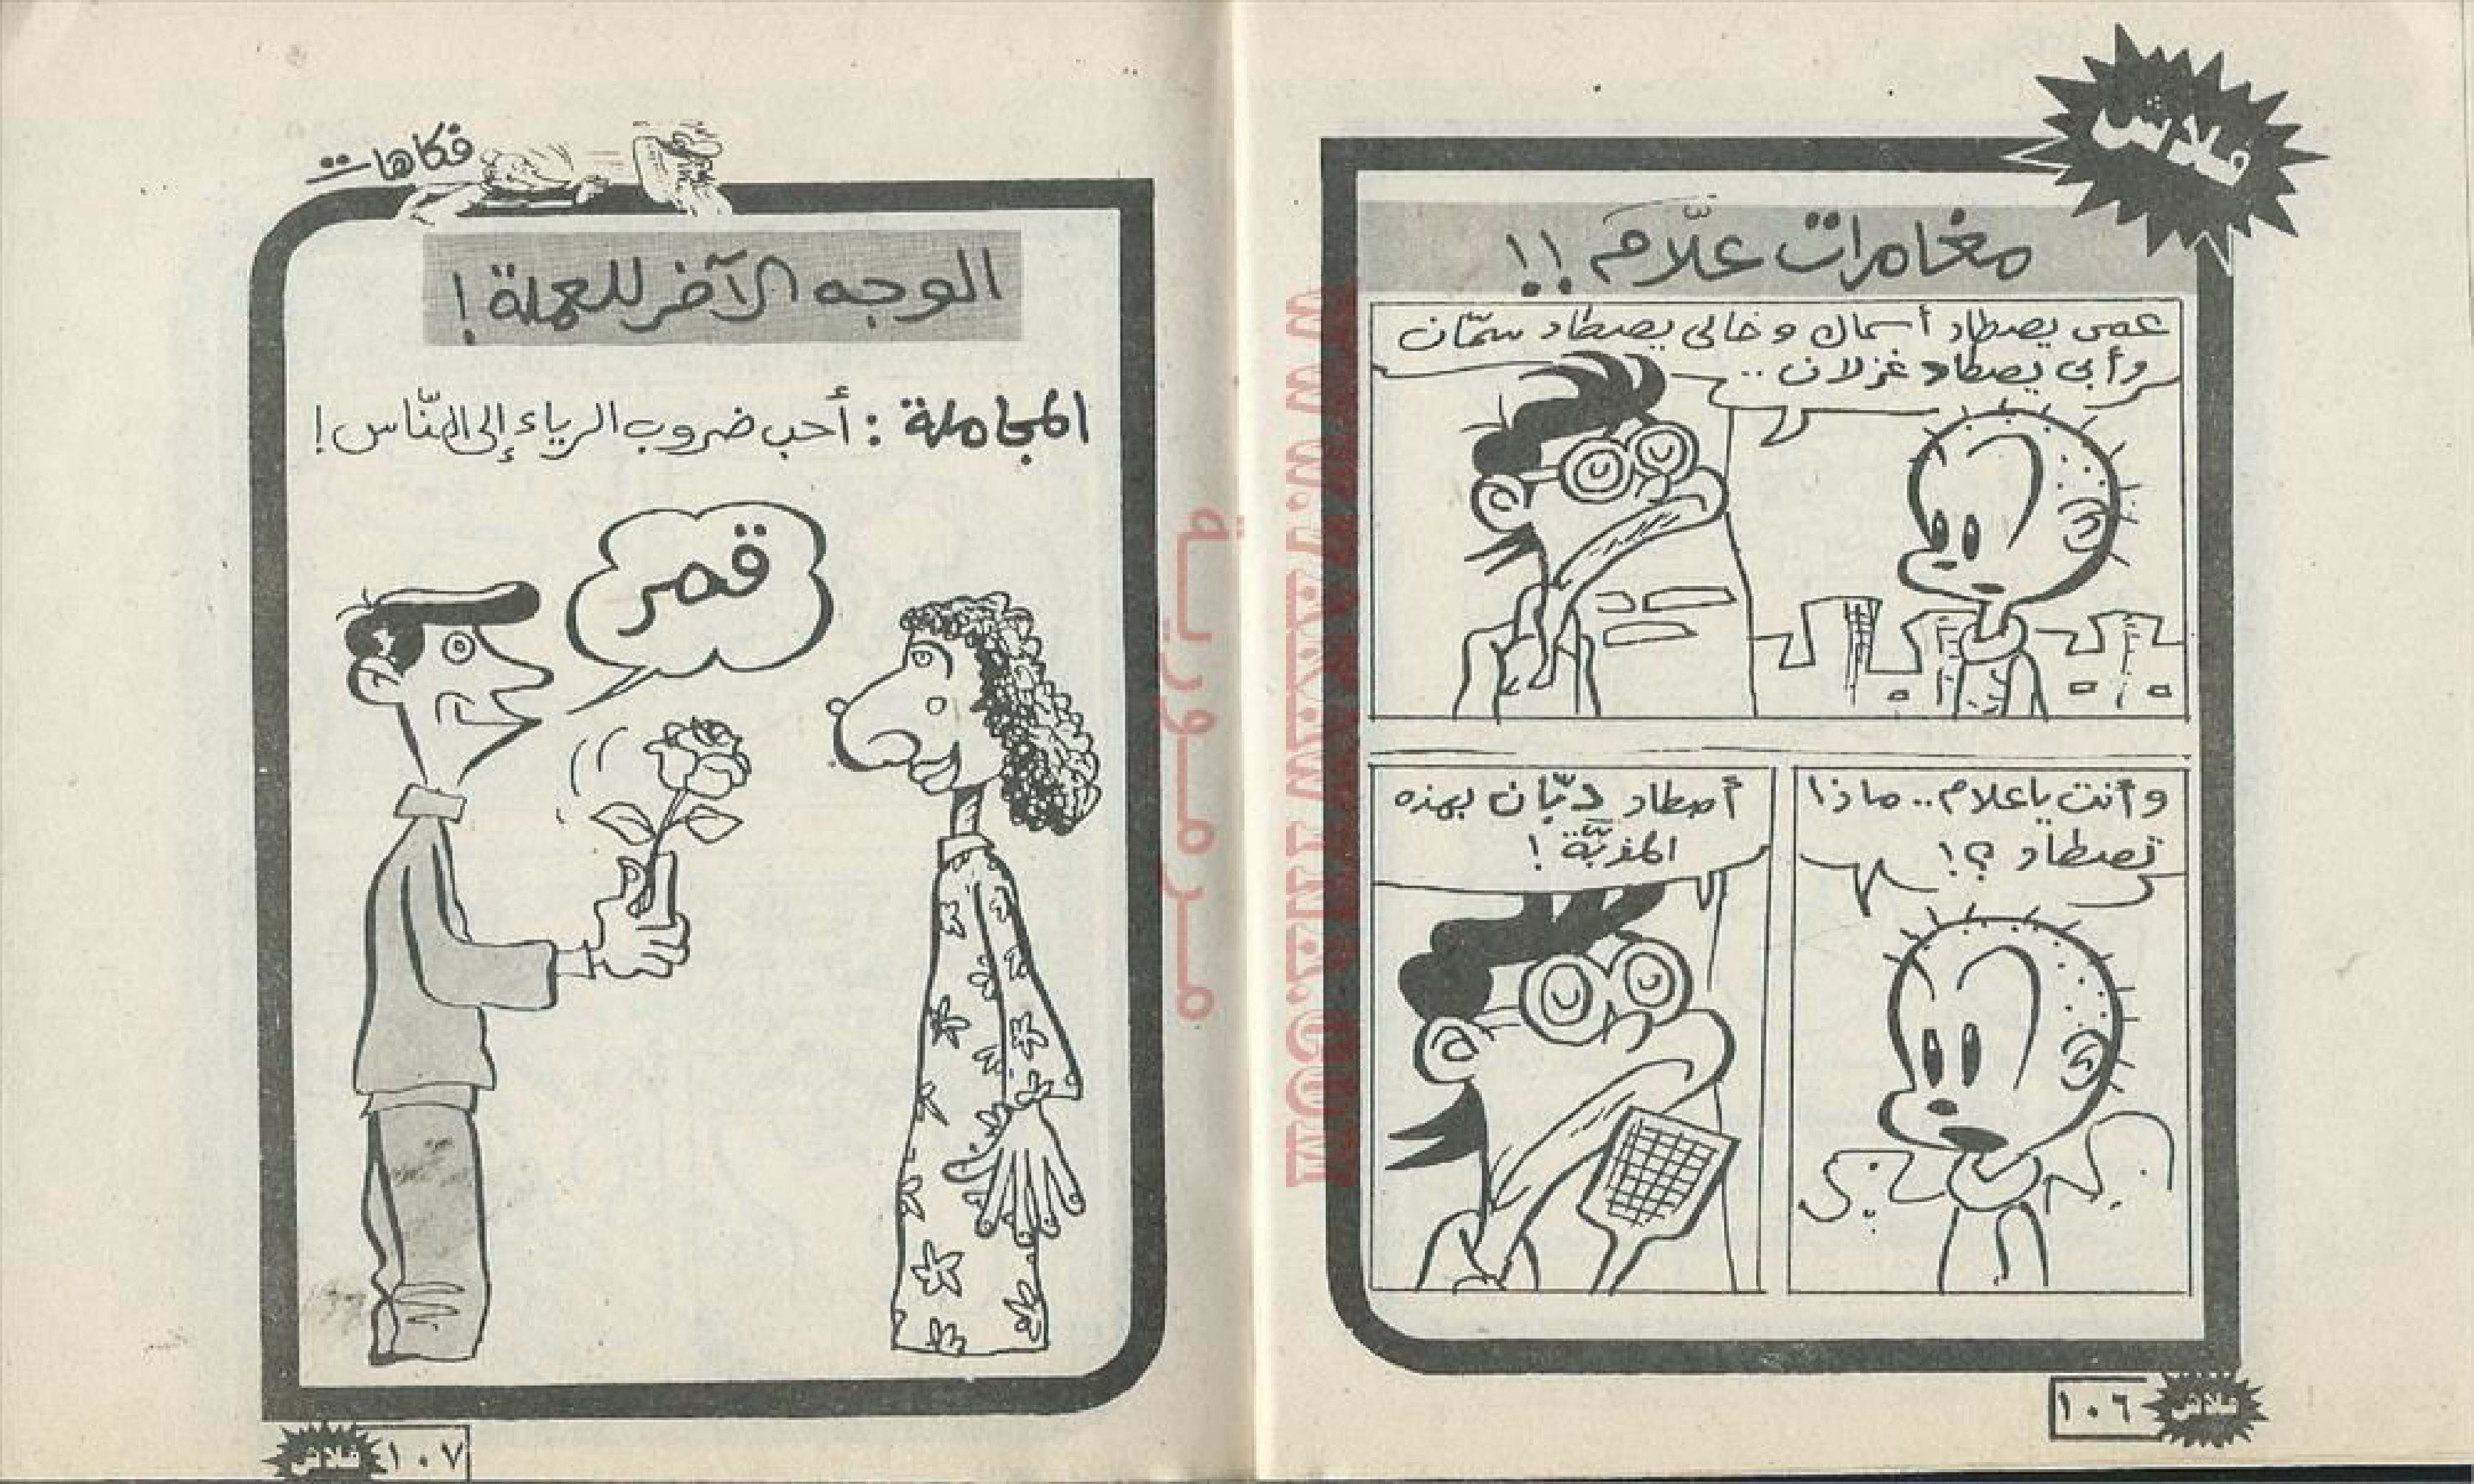 فلاش
مغامرات علّام !!
عمى يصطاد أسماك وخالى يصطاد سمّان
وأبى يصطاد غزلان ..
وأنت ياعلام .. ماذا
تصطاد ؟!
أصطاد دبّان بهذه
المذبّة !
١٠٦
فلاش
فكاهات
الوجه الآخر للعملة !
المجاملة : أحب ضروب الرياء إلى النّاس !
قمر
فلاش ١٠٧
مرمورية
WWW.ARABCOMICS.COM